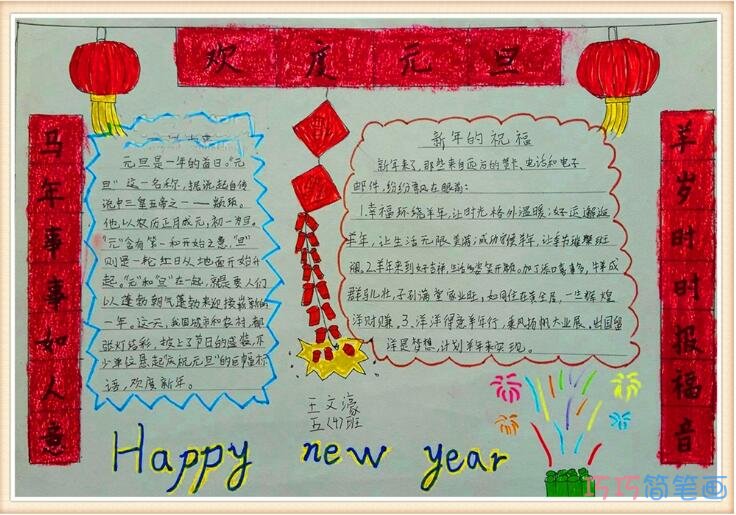 欢度元旦
马年事事如人意
元旦是一年的首日。"元
旦"这一名称,据说起自传
说中三皇五帝之一——颛顼。
他,以农历正月成元,初一为旦。
"元"含有第一和开始之意,"旦"
则是一轮红日从地面开始升
起。"元"和"旦"在一起,就是要人们
以蓬勃朝气蓬勃来迎接崭新的
一年。这一天,我国城市和农村,都
张灯结彩,披上了节日的盛装,不
少单位悬起"庆祝元旦"的巨幅标
语,欢度新年。
新年的祝福
新年来了,那些来自远方的贺卡、电话和电子
邮件,纷纷飘在眼前:
1.幸福环绕羊年,让时光格外温暖;好运邂逅
羊年,让生活无限美满;成功守候羊年,让季节璀璨斑
斓。2.羊来到好吉祥,生活
群马儿壮,子孙满堂家业旺,如同住在安全屋,一生辉煌
洋财赚。3.洋洋得意羊年行,乘风扬帆大业展,出国留
洋是梦想,计划羊年来实现。
羊岁时时报福音
王文濠
五(4)班
Happy new year
巧巧简笔画